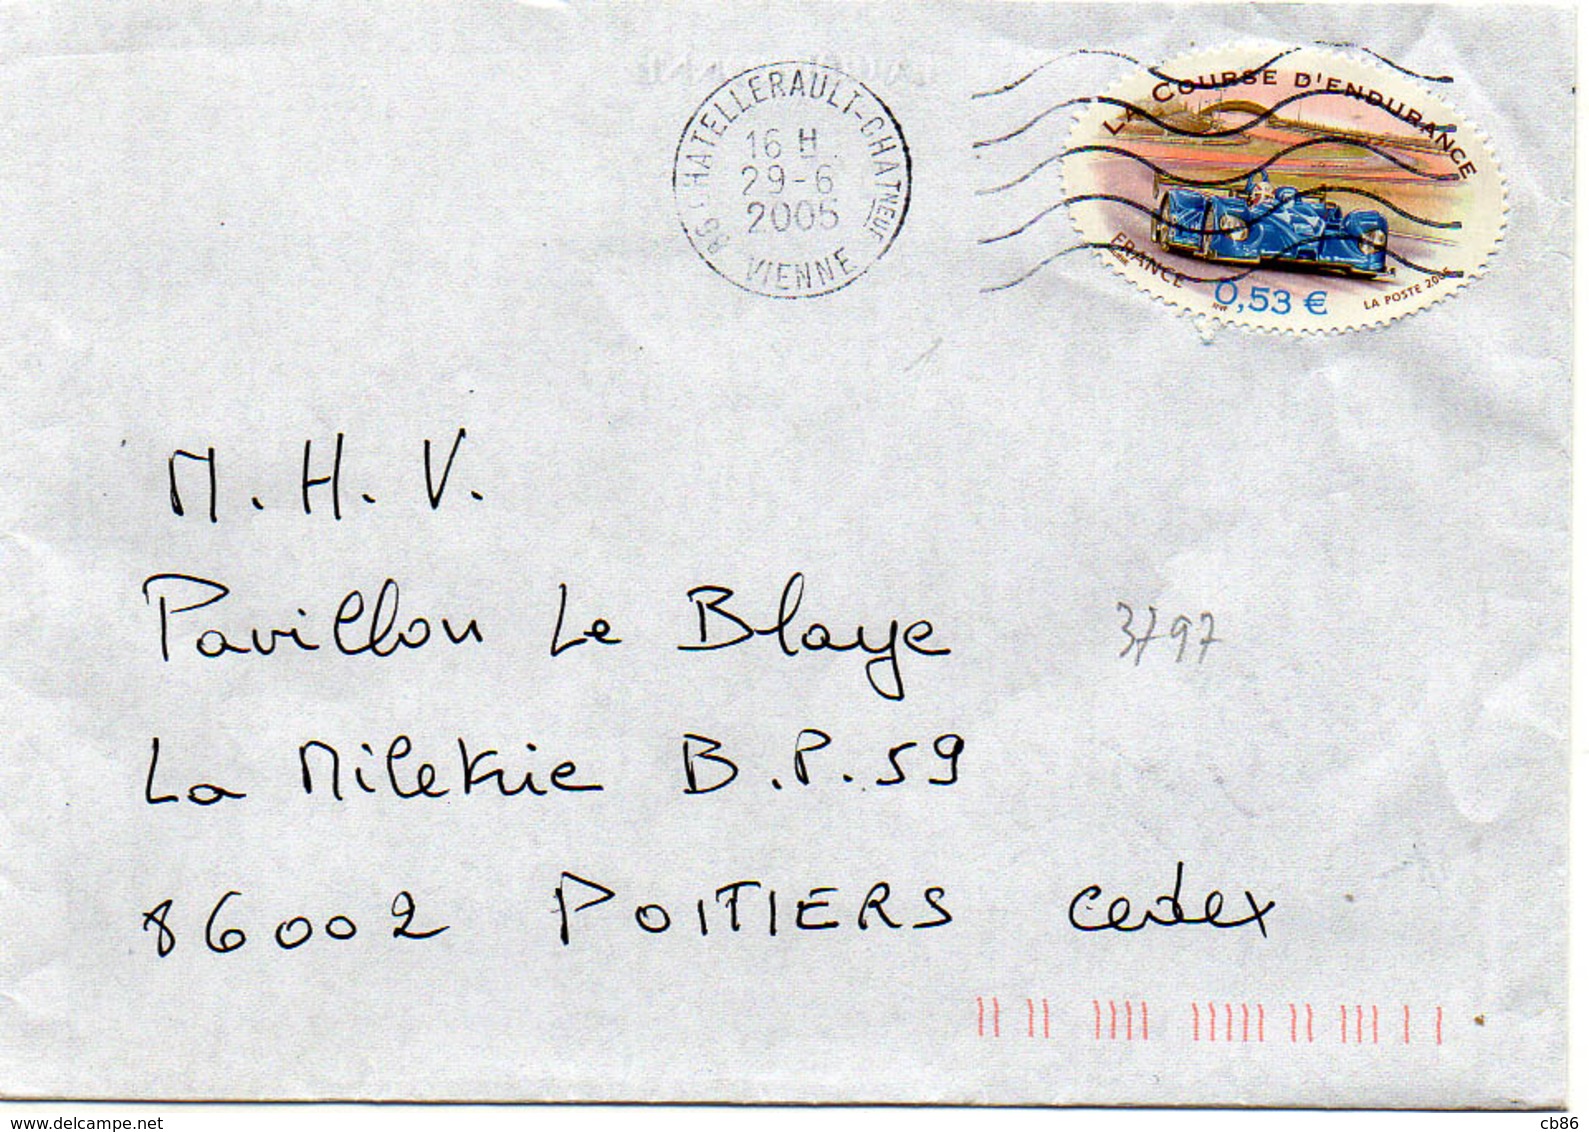 86 CHATELLERAULT-CHATNEUF
16 H
29-6
2005
VIENNE
LA COURSE D'ENDURANCE
FRANCE
0,53 €
LA POSTE 2005
M. H. V.
Pavillon Le Blaye
3797
La Miletrie B.P. 59
86002 POITIERS Cedex
www.delcampe.net
cb86